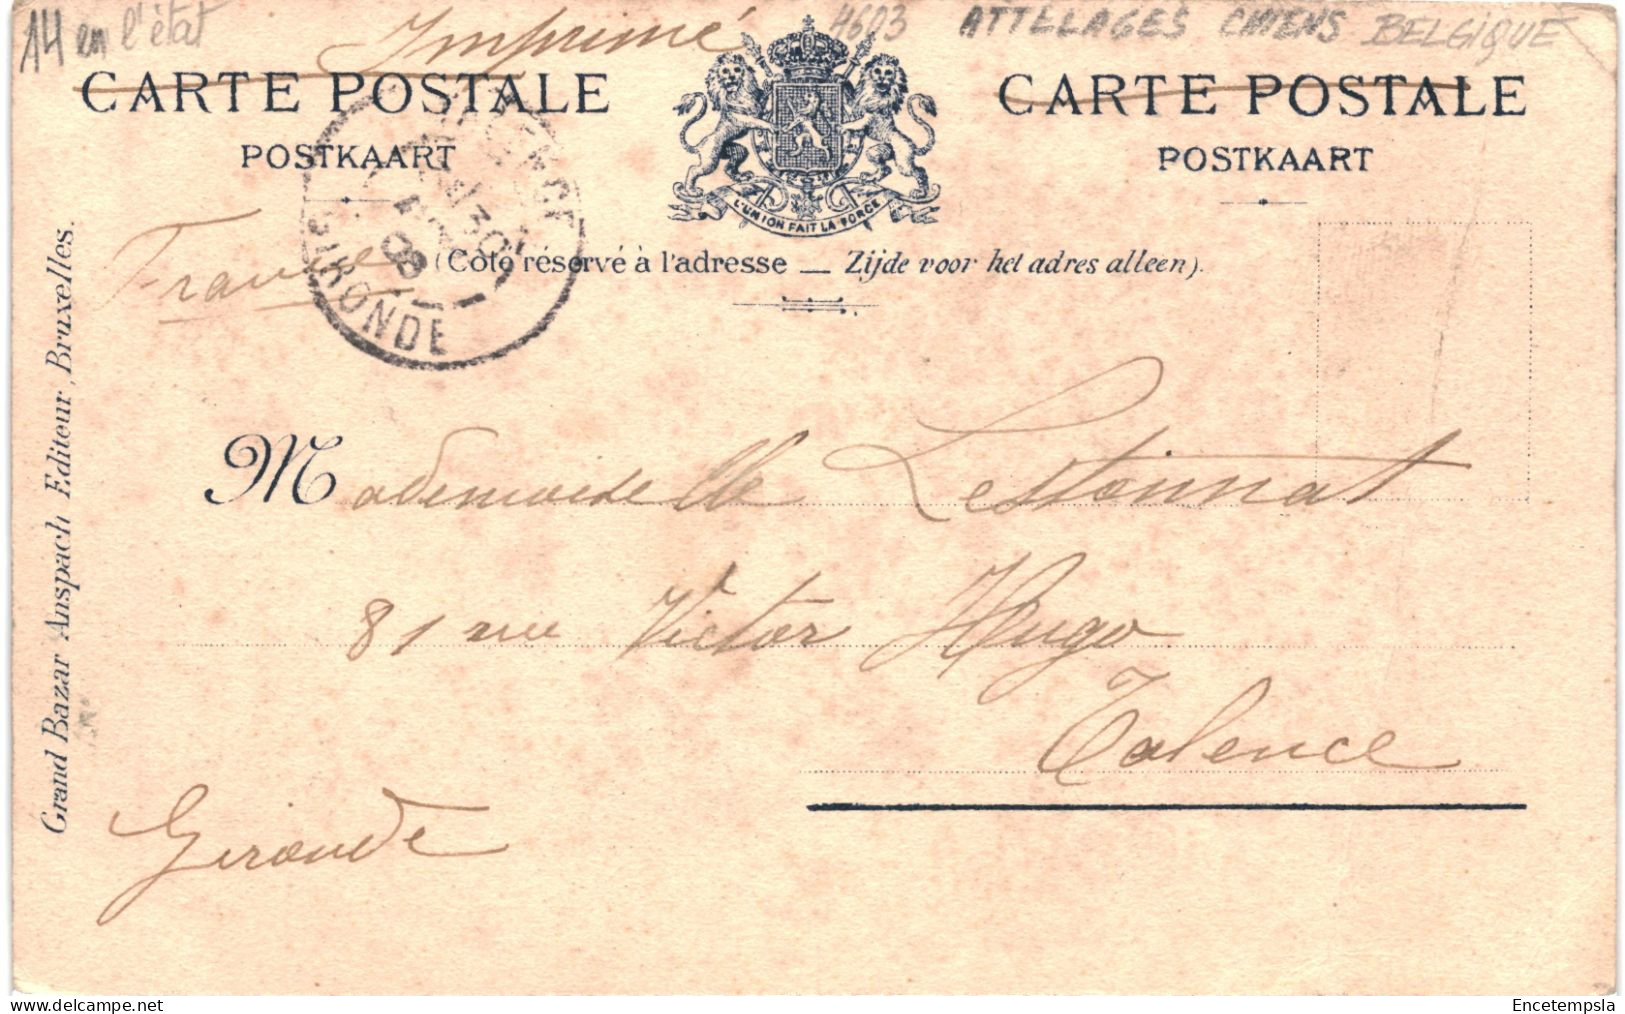 14 en l'état
Imprimé
4603 ATTELAGES CHIENS BELGIQUE
CARTE POSTALE
POSTKAART
CARTE POSTALE
POSTKAART
L'UNION FAIT LA FORCE
France
(Côté réservé à l'adresse — Zijde voor het adres alleen).
30
08
GIRONDE
Grand Bazar Anspach Editeur, Bruxelles.
Mademoiselle Lestonnat
81 rue Victor Hugo
Talence
Gironde
delcampe.net
Encetempsla